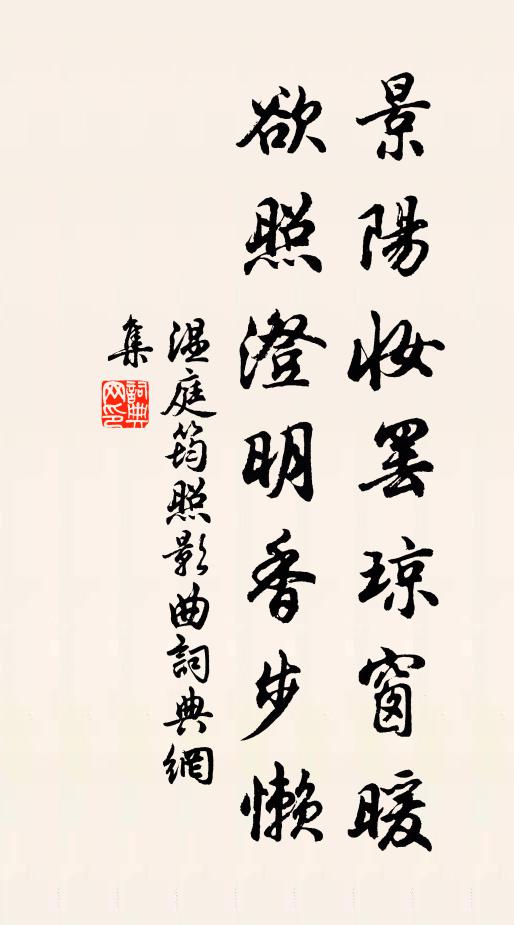 景陽妝罷琼窗暖
欲照澄明香步懶
温庭筠照影曲詞典網
集
詞典
网印